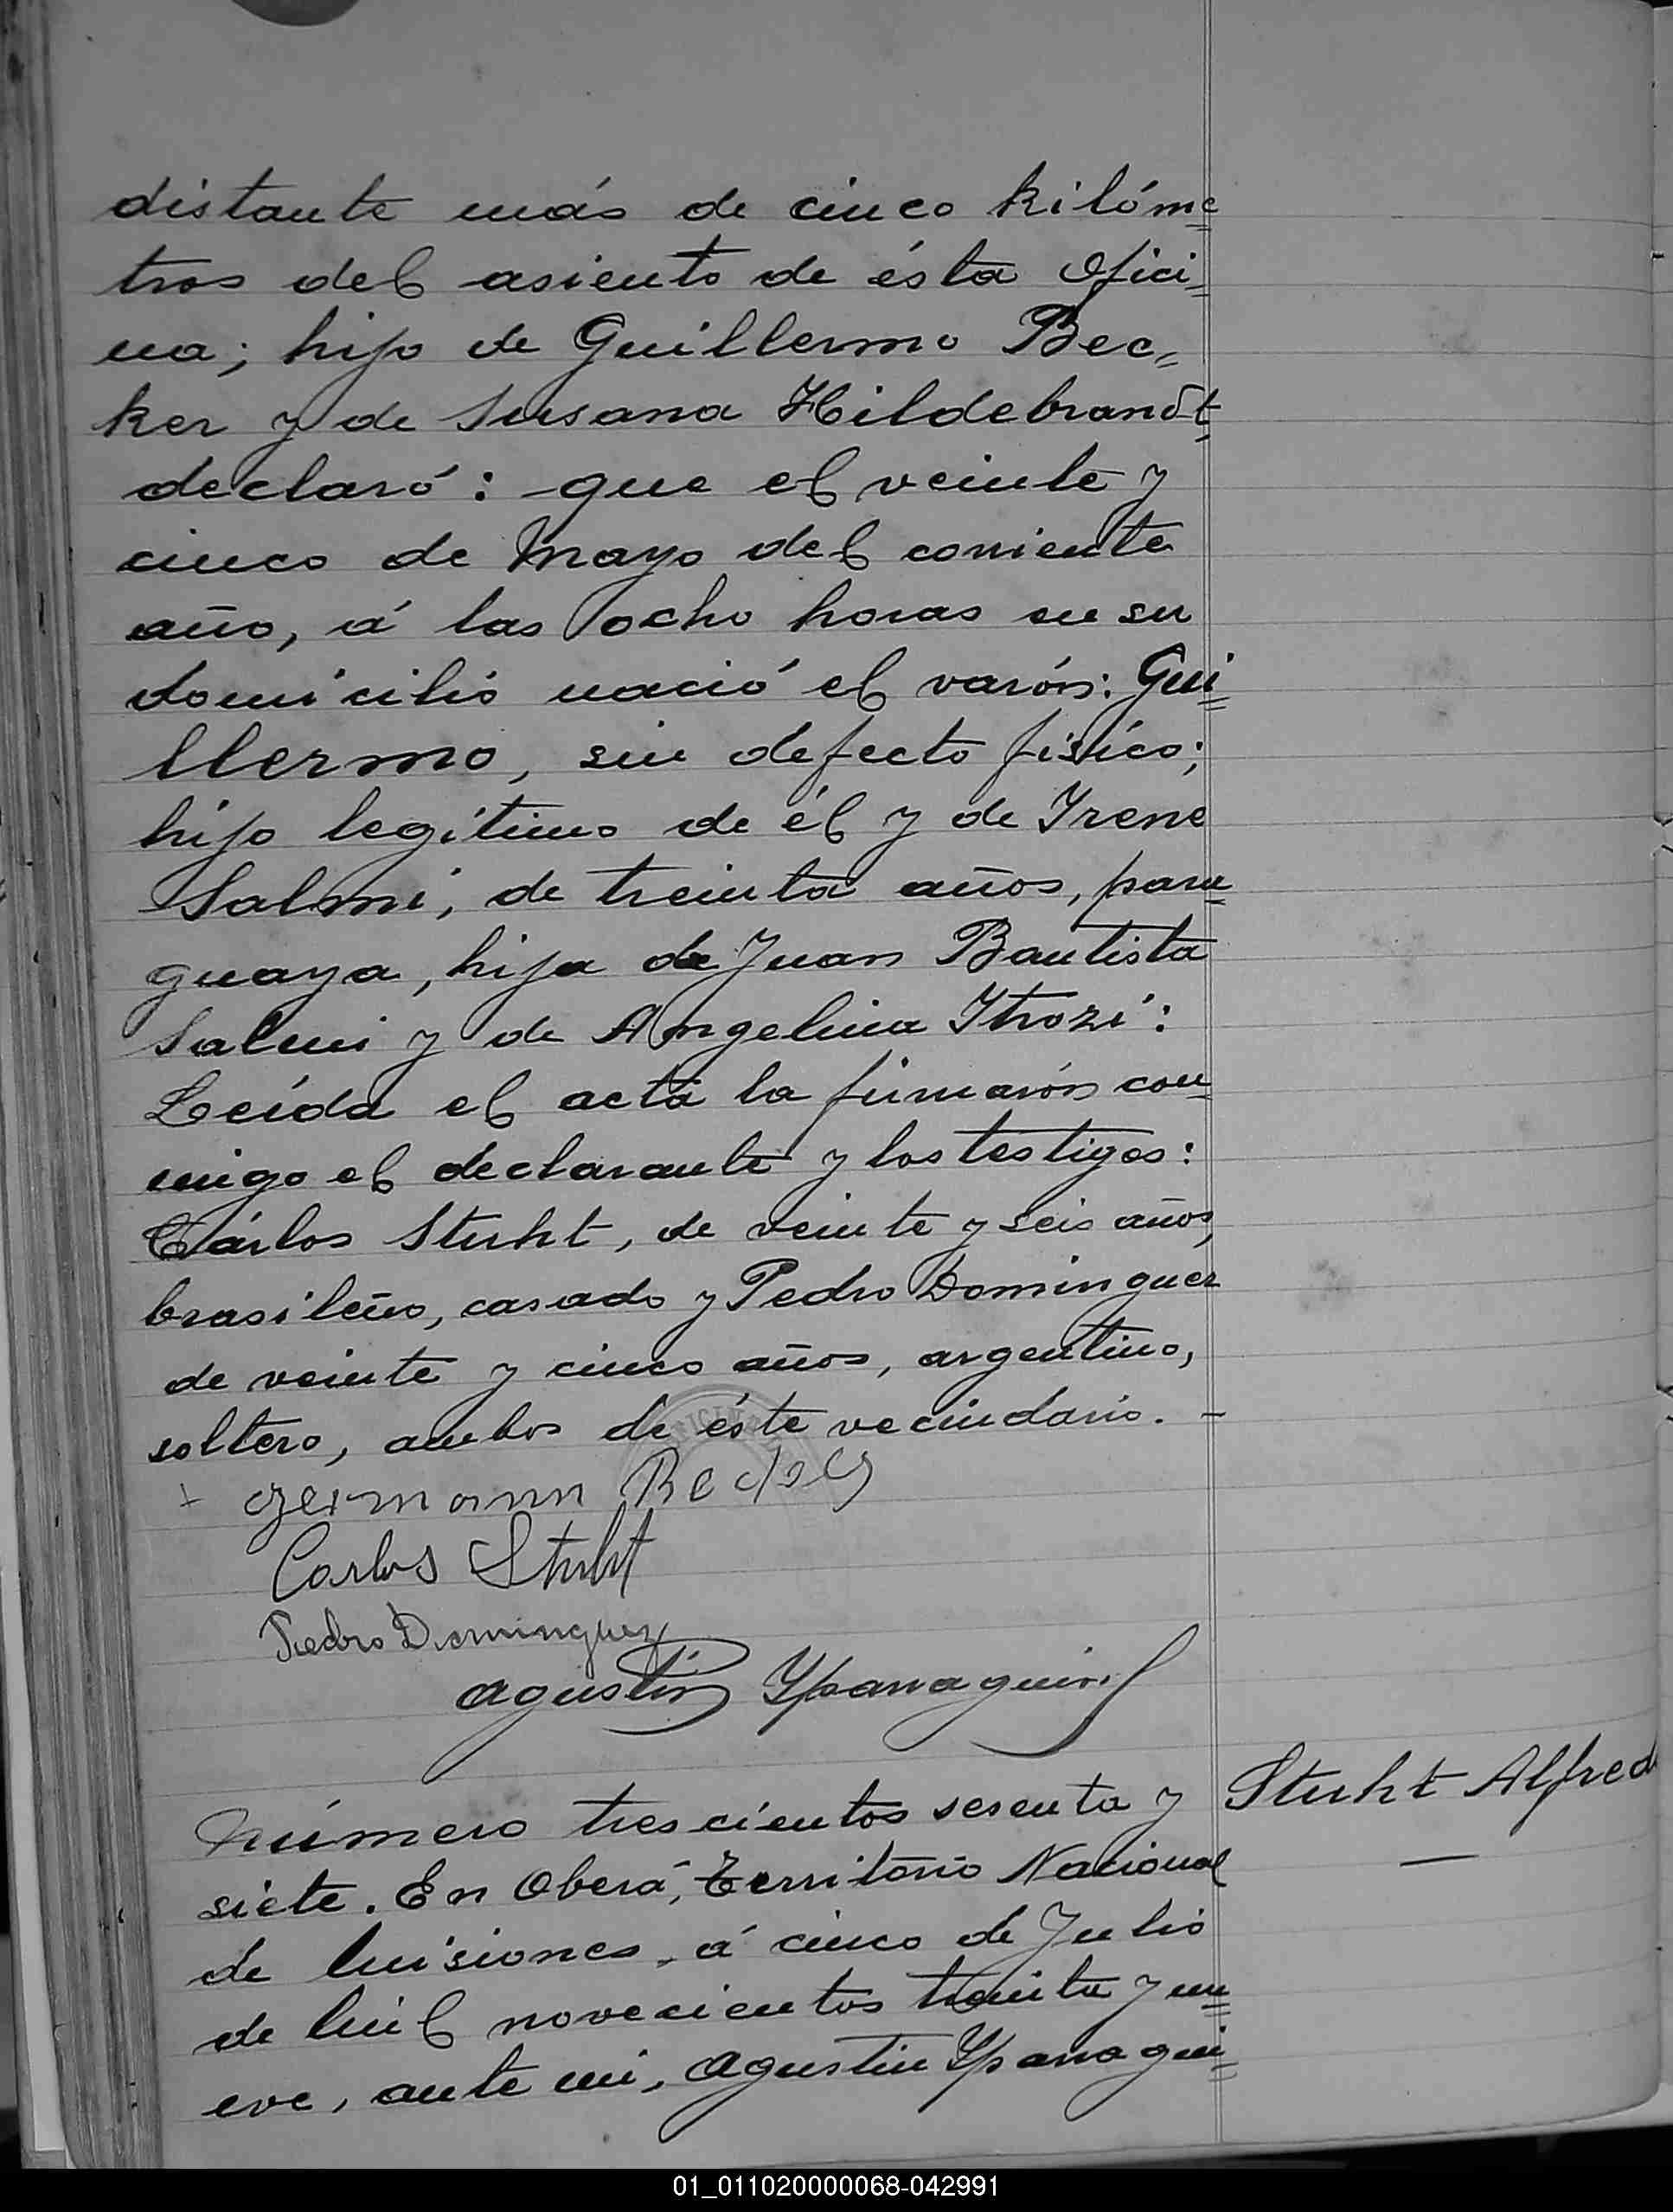 distante más de cinco kilóme=
tros del asiento de ésta Ofici=
na; hijo de Guillermo Bec=
ker y de Susana Hildebrandt,
declaró: que el veinte y
cinco de Mayo del corriente
año, á las ocho horas en su
domicilio nació el varón: Gui=
llermo, sin defecto fisíco;
hijo legítimo de él y de Yrene
Salmi, de treinta años, para=
guaya, hija de Juan Bautista
Salmi y de Angelina Ytrozi:
Leída el acta la firmarón con=
migo el declarante y los testigos:
Cárlos Stuht, de veinte y seis años,
brasileño, casado y Pedro Dominguez
de veinte y cinco años, argentino,
soltero, ambos de éste vecindario. -
+ Germann
Carlos Stuht
Pedro Dominguez
Agustin Ypanaguirre
Número trescientos sesenta y
Stuht Alfred
siete. En Oberá, Territorio Nacional
de Misiones, á cinco de Julio
de mil novecientos treinta y nu=
eve, ante mi, Agustin Ypanagui=
01_011020000068-042991